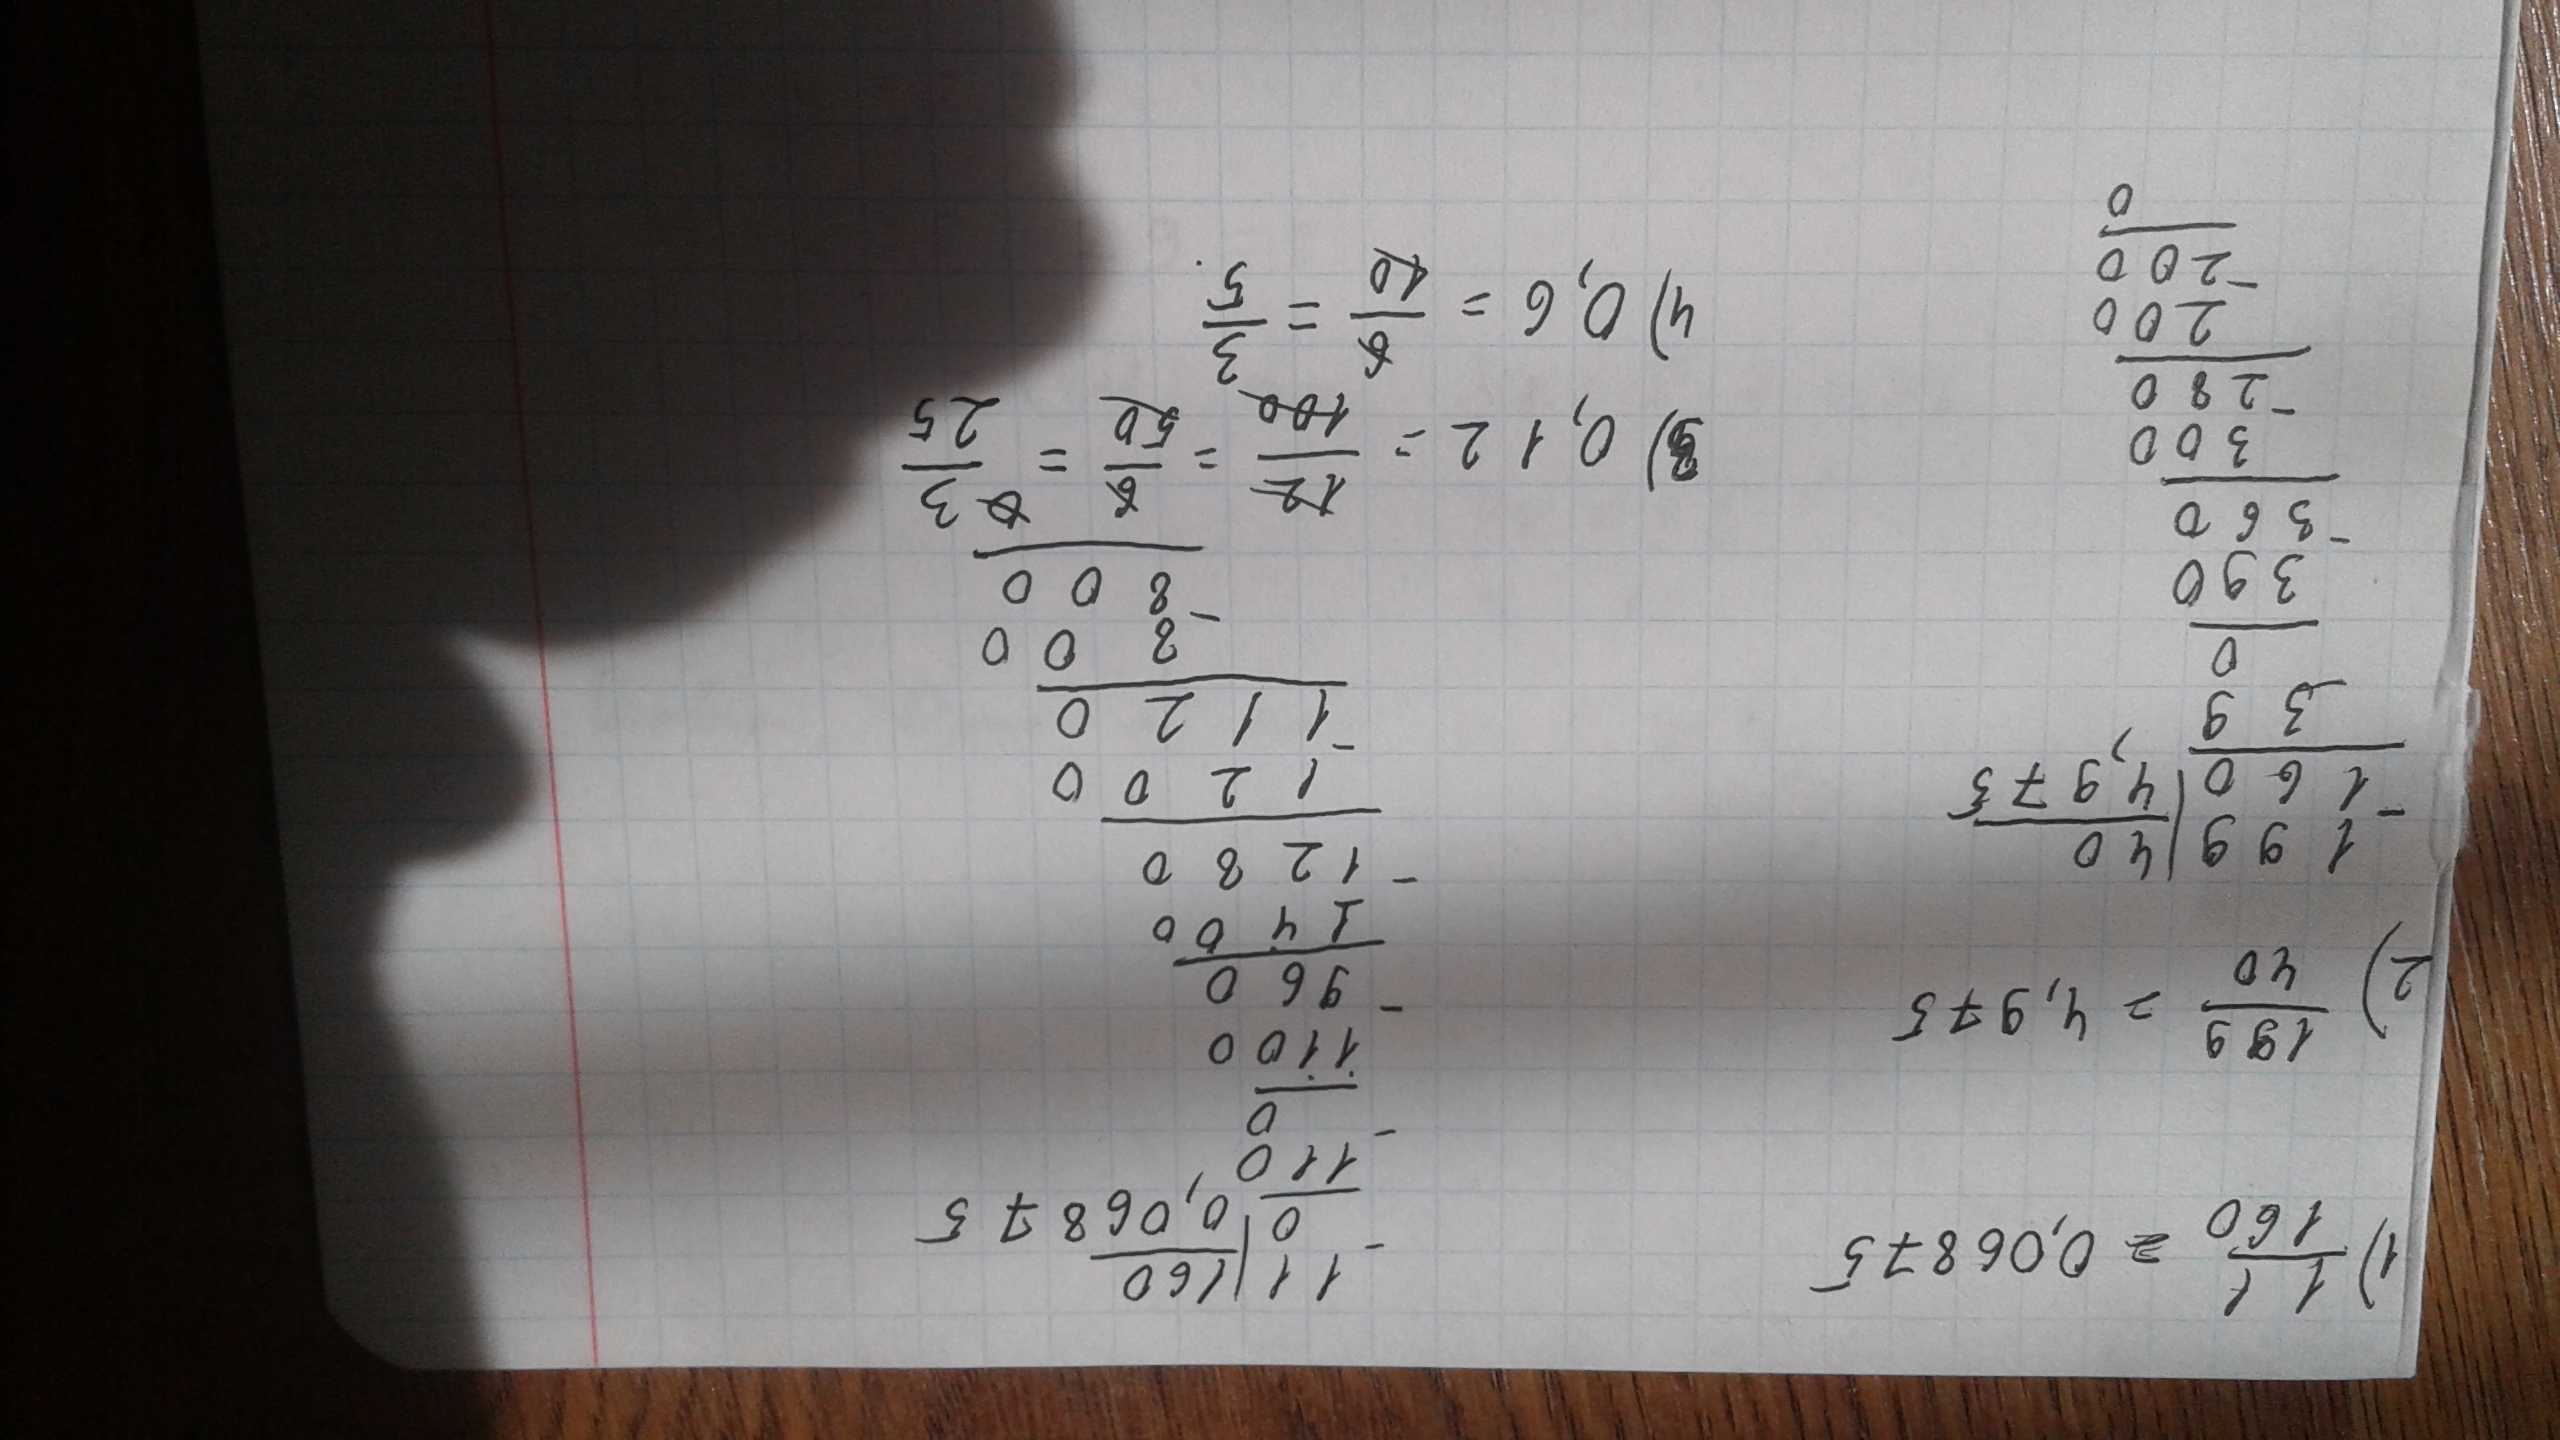 1) 11/160 = 0,06875
11 | 160
- 0 | 0,06875
110
- 0
1100
- 960
1400
- 1280
1200
- 1120
800
- 800
0
2) 199/40 = 4,975
199 | 40
- 160 | 4,975
39
0
390
- 360
300
- 280
200
- 200
0
3) 0,12 = 12/100 = 6/50 = 3/25
4) 0,6 = 6/10 = 3/5.